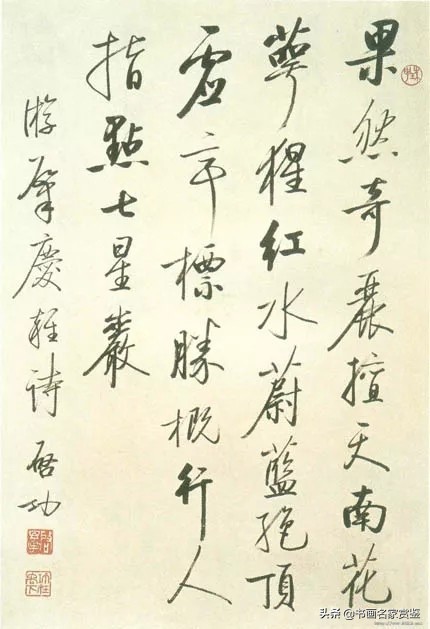 果然奇麗擅天南花
萼猩紅水蔚藍絕頂
虛亭標勝概行人
指點七星巖
游肇慶雜詩 啓功
头条 @书画名家赏鉴